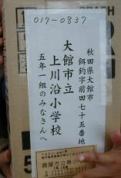 017-0837
秋田県大館市
餌釣字前田七十五番地
大館市立
上川沿小学校
五年一組のみなさんへ